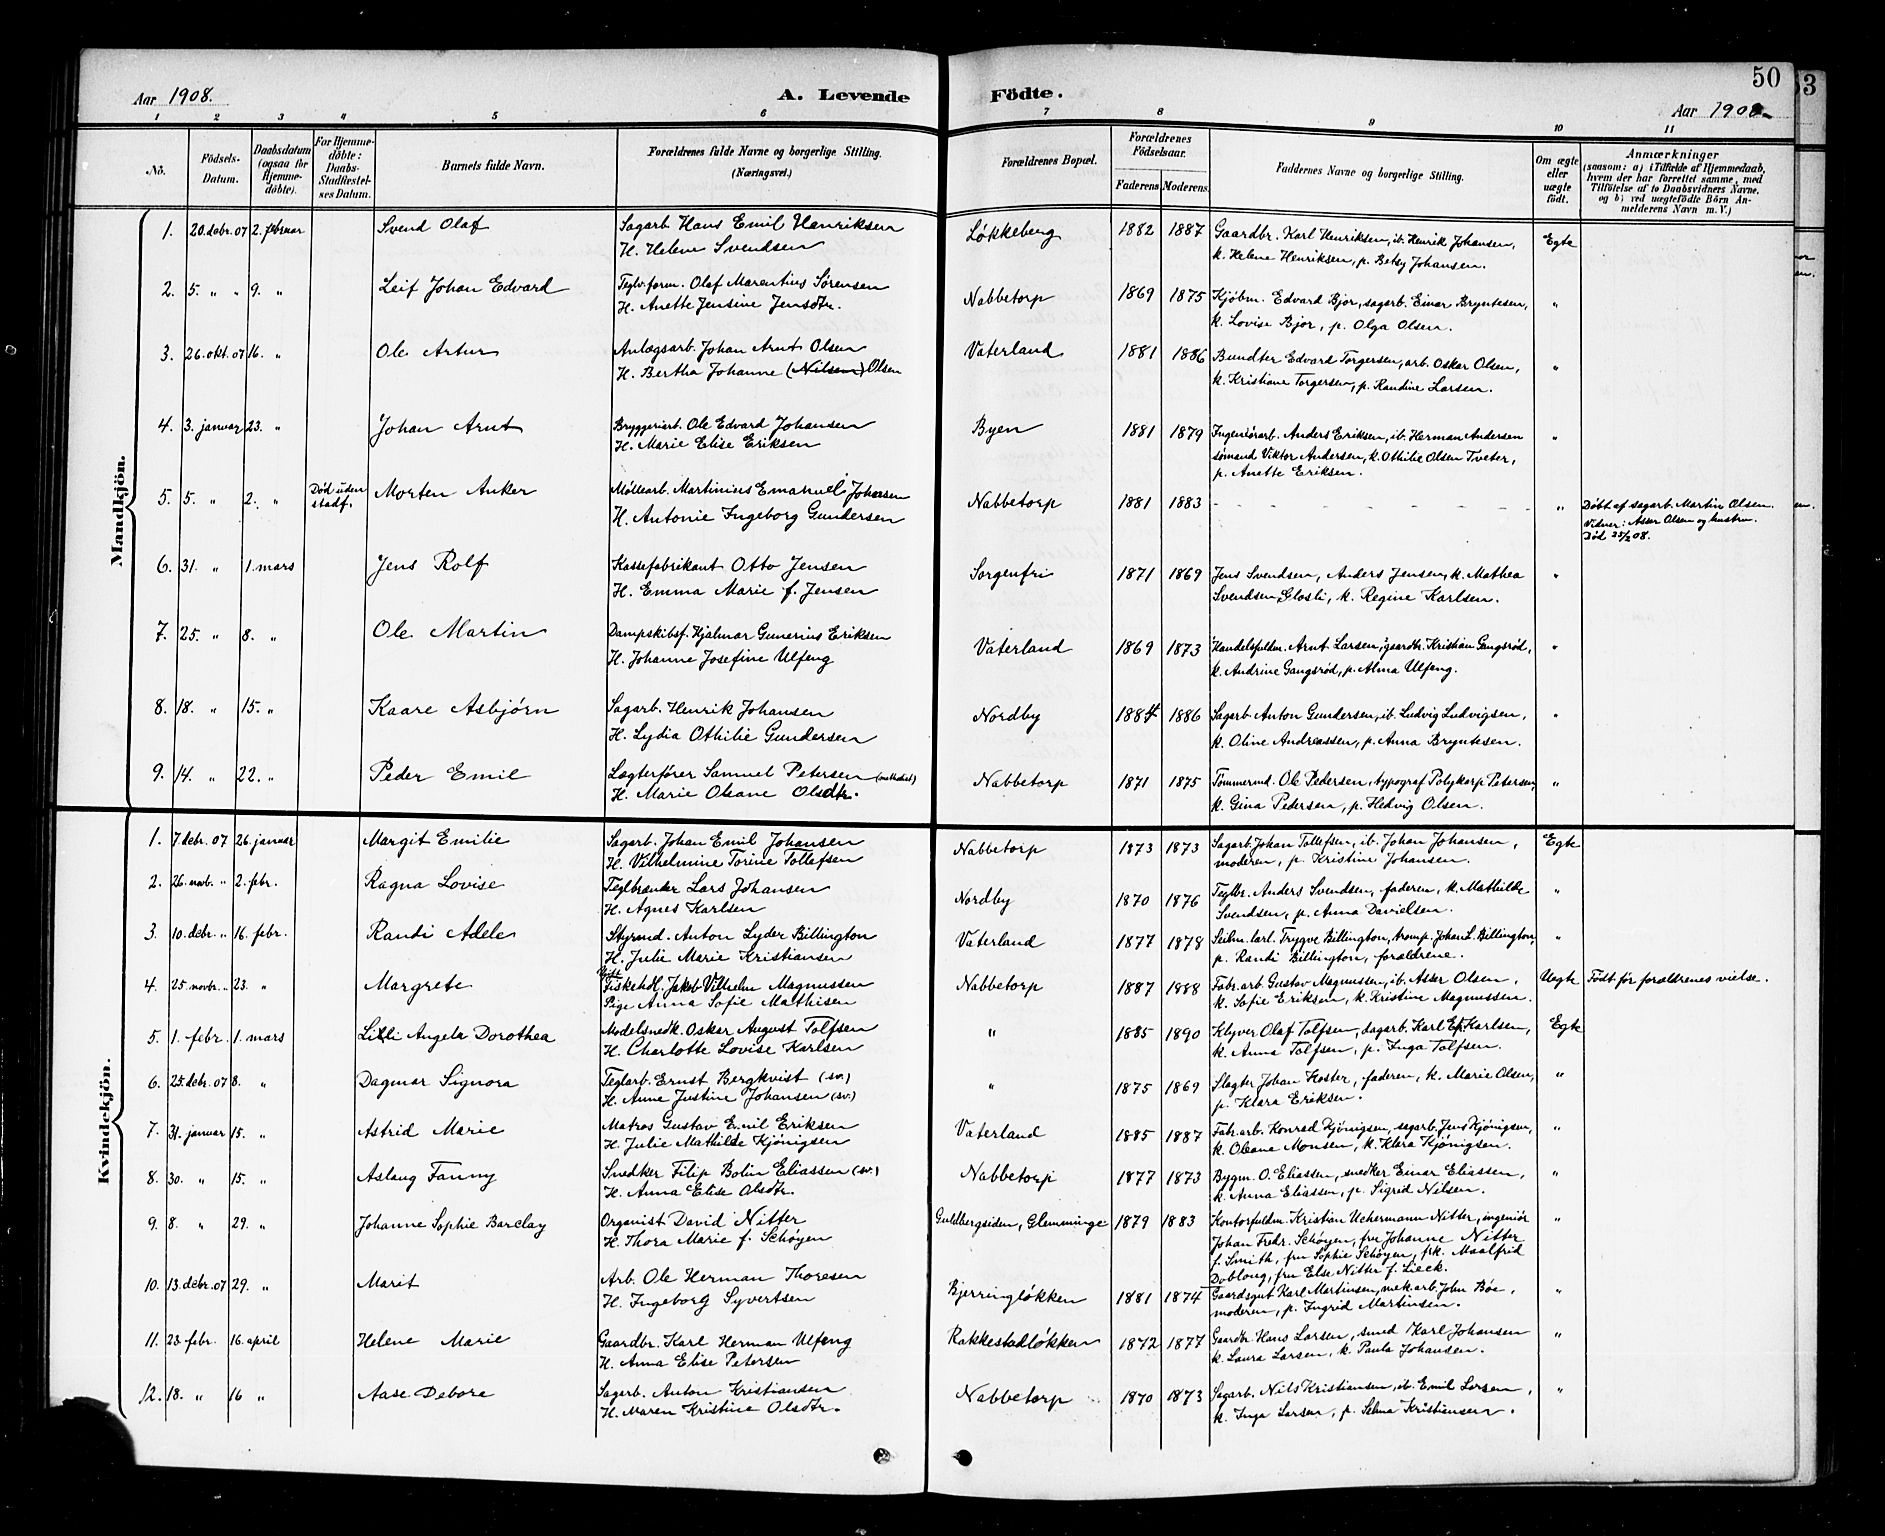 Aar 1908.
A. Levende
Födte.
50
53
Aar 1908
1 2 3 4 5 6 7 8 9 10 11
No.
Födsels-Datum.
Daabsdatum (ogsaa for Hjemmedöbte).
For Hjemmedöbte: Daabs-Stadfæstelses Datum.
Barnets fulde Navn.
Forældrenes fulde Navne og borgerlige Stilling. (Næringsvei.)
Forældrenes Bopæl.
Forældrenes Födselsaar. Faderens. Moderens.
Faddernes Navne og borgerlige Stilling.
Om ægte eller uægte födt.
Anmærkninger (saasom: a) i Tilfælde af Hjemmedaab, hvem der har forrettet samme, med Tilföielse af to Daabsvidners Navne, og b) ved uægtefödte Börn Anmelderens Navn m. V.)
Mandkjön.
1. 20. debr. 07 2. februar Svend Olaf Sagarb. Hans Emil Henriksen Løkkeberg 1882 1887 Gaardbr. Karl Henriksen, ib. Henrik Johansen, Egte
H. Helene Svendsen k. Helene Henriksen, p. Betsy Johansen.
2. 5. " " 9. " Leif Johan Edvard Teglv.form. Olaf Marentius Sørensen Nabbetorp 1869 1875 Kjøbm. Edvard Bjor, sagarb. Einar Bryntesen, "
H. Anette Jensine Jensdtr. k. Lovise Bjor, p. Olga Olsen.
3. 26. okt. 07 16. " Ole Artur Anlægsarb. Johan Arnt Olsen Vaterland 1881 1886 Bundter Edvard Torgersen, arb. Oskar Olsen, "
H. Bertha Johanne (Nilsen) Olsen k. Kristiane Torgersen, p. Randine Larsen.
4. 3. januar 23. " Johan Arnt Bryggeriarb. Ole Edvard Johansen Byen 1881 1879 Ingeniörarb. Anders Eriksen, ib. Herman Andersen "
H. Marie Elise Eriksen sømand Viktor Andersen, k. Othilie Olsen Tveter,
p. Anette Eriksen.
5. 5. " 2. " Død uden stadf. Morten Anker Møllearb. Martinius Emanuel Johansen Nabbetorp 1881 1883 - - - - - - - " Döbt af sagarb. Martin Olsen.
H. Antonie Ingeborg Gundersen Vidner: Asser Olsen og hustru.
Död 25/2 08.
6. 31. " 1. mars Jens Rolf Kassefabrikant Otto Jensen Sorgenfri 1871 1869 Jens Svendsen, Anders Jensen, k. Mathea "
H. Emma Marie f. Jensen Svendsen Glosli, k. Regine Karlsen.
7. 25. " 8. " Ole Martin Dampskibsf. Hjalmar Gunerius Eriksen Vaterland 1869 1873 Handelsfuldm. Arnt Larsen, gaardbr. Kristian Gangsrød, "
H. Johanne Josefine Ulfeng k. Andrine Gangsrød, p. Alma Ulfeng.
8. 18. " 15. " Kaare Asbjörn Sagarb. Henrik Johansen Nordby 1884 1886 Sagarb. Anton Gundersen, ib. Ludvig Ludvigsen, "
H. Lydia Othilie Gundersen k. Oline Andreassen, p. Anna Bryntesen.
9. 14. " 22. " Peder Emil Lægterfører Samuel Petersen (methodist) Nabbetorp 1871 1875 Tømmermd. Ole Pedersen, typograf Polykarp Petersen, "
H. Marie Oleane Olsdtr. k. Gina Pedersen, p. Hedvig Olsen.
Kvindekjön.
1. 7. debr. 07 26. januar Margit Emilie Sagarb. Johan Emil Johansen Nabbetorp 1873 1873 Sagarb. Johan Tollefsen, ib. Johan Johansen, Egte
H. Vilhelmine Torine Tollefsen moderen, p. Kristine Johansen.
2. 26. novb. " 2. febr. Ragna Lovise Teglbrænder Lars Johansen Nordby 1870 1876 Teglbr. Anders Svendsen, faderen, k. Mathilde "
H. Agnes Karlsen Svendsen, p. Anna Davielsen.
3. 10. debr. " 16. febr. Randi Adele Styrmd. Anton Lyder Billington Vaterland 1877 1878 Seilm.lærl. Trygve Billington, tromp. Johan L. Billington, "
H. Julie Marie Kristiansen p. Randi Billington, forældrene.
4. 25. novbr. " 23. " Margrete Fiskehdl. Jakob Vilhelm Magnussen Nabbetorp 1887 1888 Fabr.arb. Gustav Magnussen, ib. Asser Olsen, Uegte Født før forældrenes vielse.
Pige Anna Sofie Mathisen k. Sofie Eriksen, k. Kristine Magnussen.
5. 1. febr. 1. mars Lilli Angela Dorothea Modelsnedk. Oskar August Tolfsen " 1885 1890 Klyver Olaf Tolfsen, sagarb. Karl Ef. Karlsen, Egte
H. Charlotte Lovise Karlsen k. Anna Tolfsen, p. Inga Tolfsen.
6. 25. debr. 07 8. " Dagmar Signora Teglarb. Ernst Bergkvist (sv.) " 1875 1869 Slagter Johan Koster, faderen, k. Marie Olsen, "
H. Anne Justine Johansen (sv.) p. Klara Eriksen.
7. 31. januar 15. " Astrid Marie Matros Gustav Emil Eriksen Vaterland 1885 1887 Fabr.arb. Konrad Kjönigsen, sagarb. Jens Kjönigsen, "
H. Julie Mathilde Kjönigsen k. Oleana Monsen, k. Klara Kjönigsen.
8. 30. " 15. " Aslaug Fanny Snedker Filip Bolin Eliassen (sv.) Nabbetorp 1877 1873 Bygm. O. Eliassen, snedker Einar Eliassen, "
H. Anna Elise Olsdtr. k. Anna Eliassen, p. Sigrid Nilsen.
9. 8. " 29. " Johanne Sophie Barclay Organist David Nitter Guldbergsiden, Glemminge 1879 1883 Kontorfuldm. Kristian Uchermann Nitter, ingeniør "
H. Thora Marie f. Schöyen Johan Fredr. Schöyen, fru Johanne Nitter
f. Smith, fru Sophie Schöyen, frk. Maalfrid
Doblong, fru Else Nitter f. Lieck.
10. 13. debr. 07 29. " Marit Arb. Ole Herman Thoresen Bjerringløkken 1881 1874 Gaardsgut Karl Martinsen, mek.arb. John Böe, "
H. Ingeborg Syvertsen moderen, p. Ingrid Martinsen.
11. 23. febr. 16. april Helene Marie Gaardbr. Karl Herman Ulfeng Rakkestadløkken 1872 1877 Gaardbr. Hans Larsen, smed Karl Johansen "
H. Anna Elise Petersen k. Laura Larsen, k. Paula Johansen.
12. 18. " 16 " Aase Debora Sagarb. Anton Kristiansen Nabbetorp 1870 1873 Sagarb. Nils Kristiansen, ib. Emil Larsen, "
H. Maren Kristine Olsdtr. k. Inga Larsen, p. Selma Kristiansen.